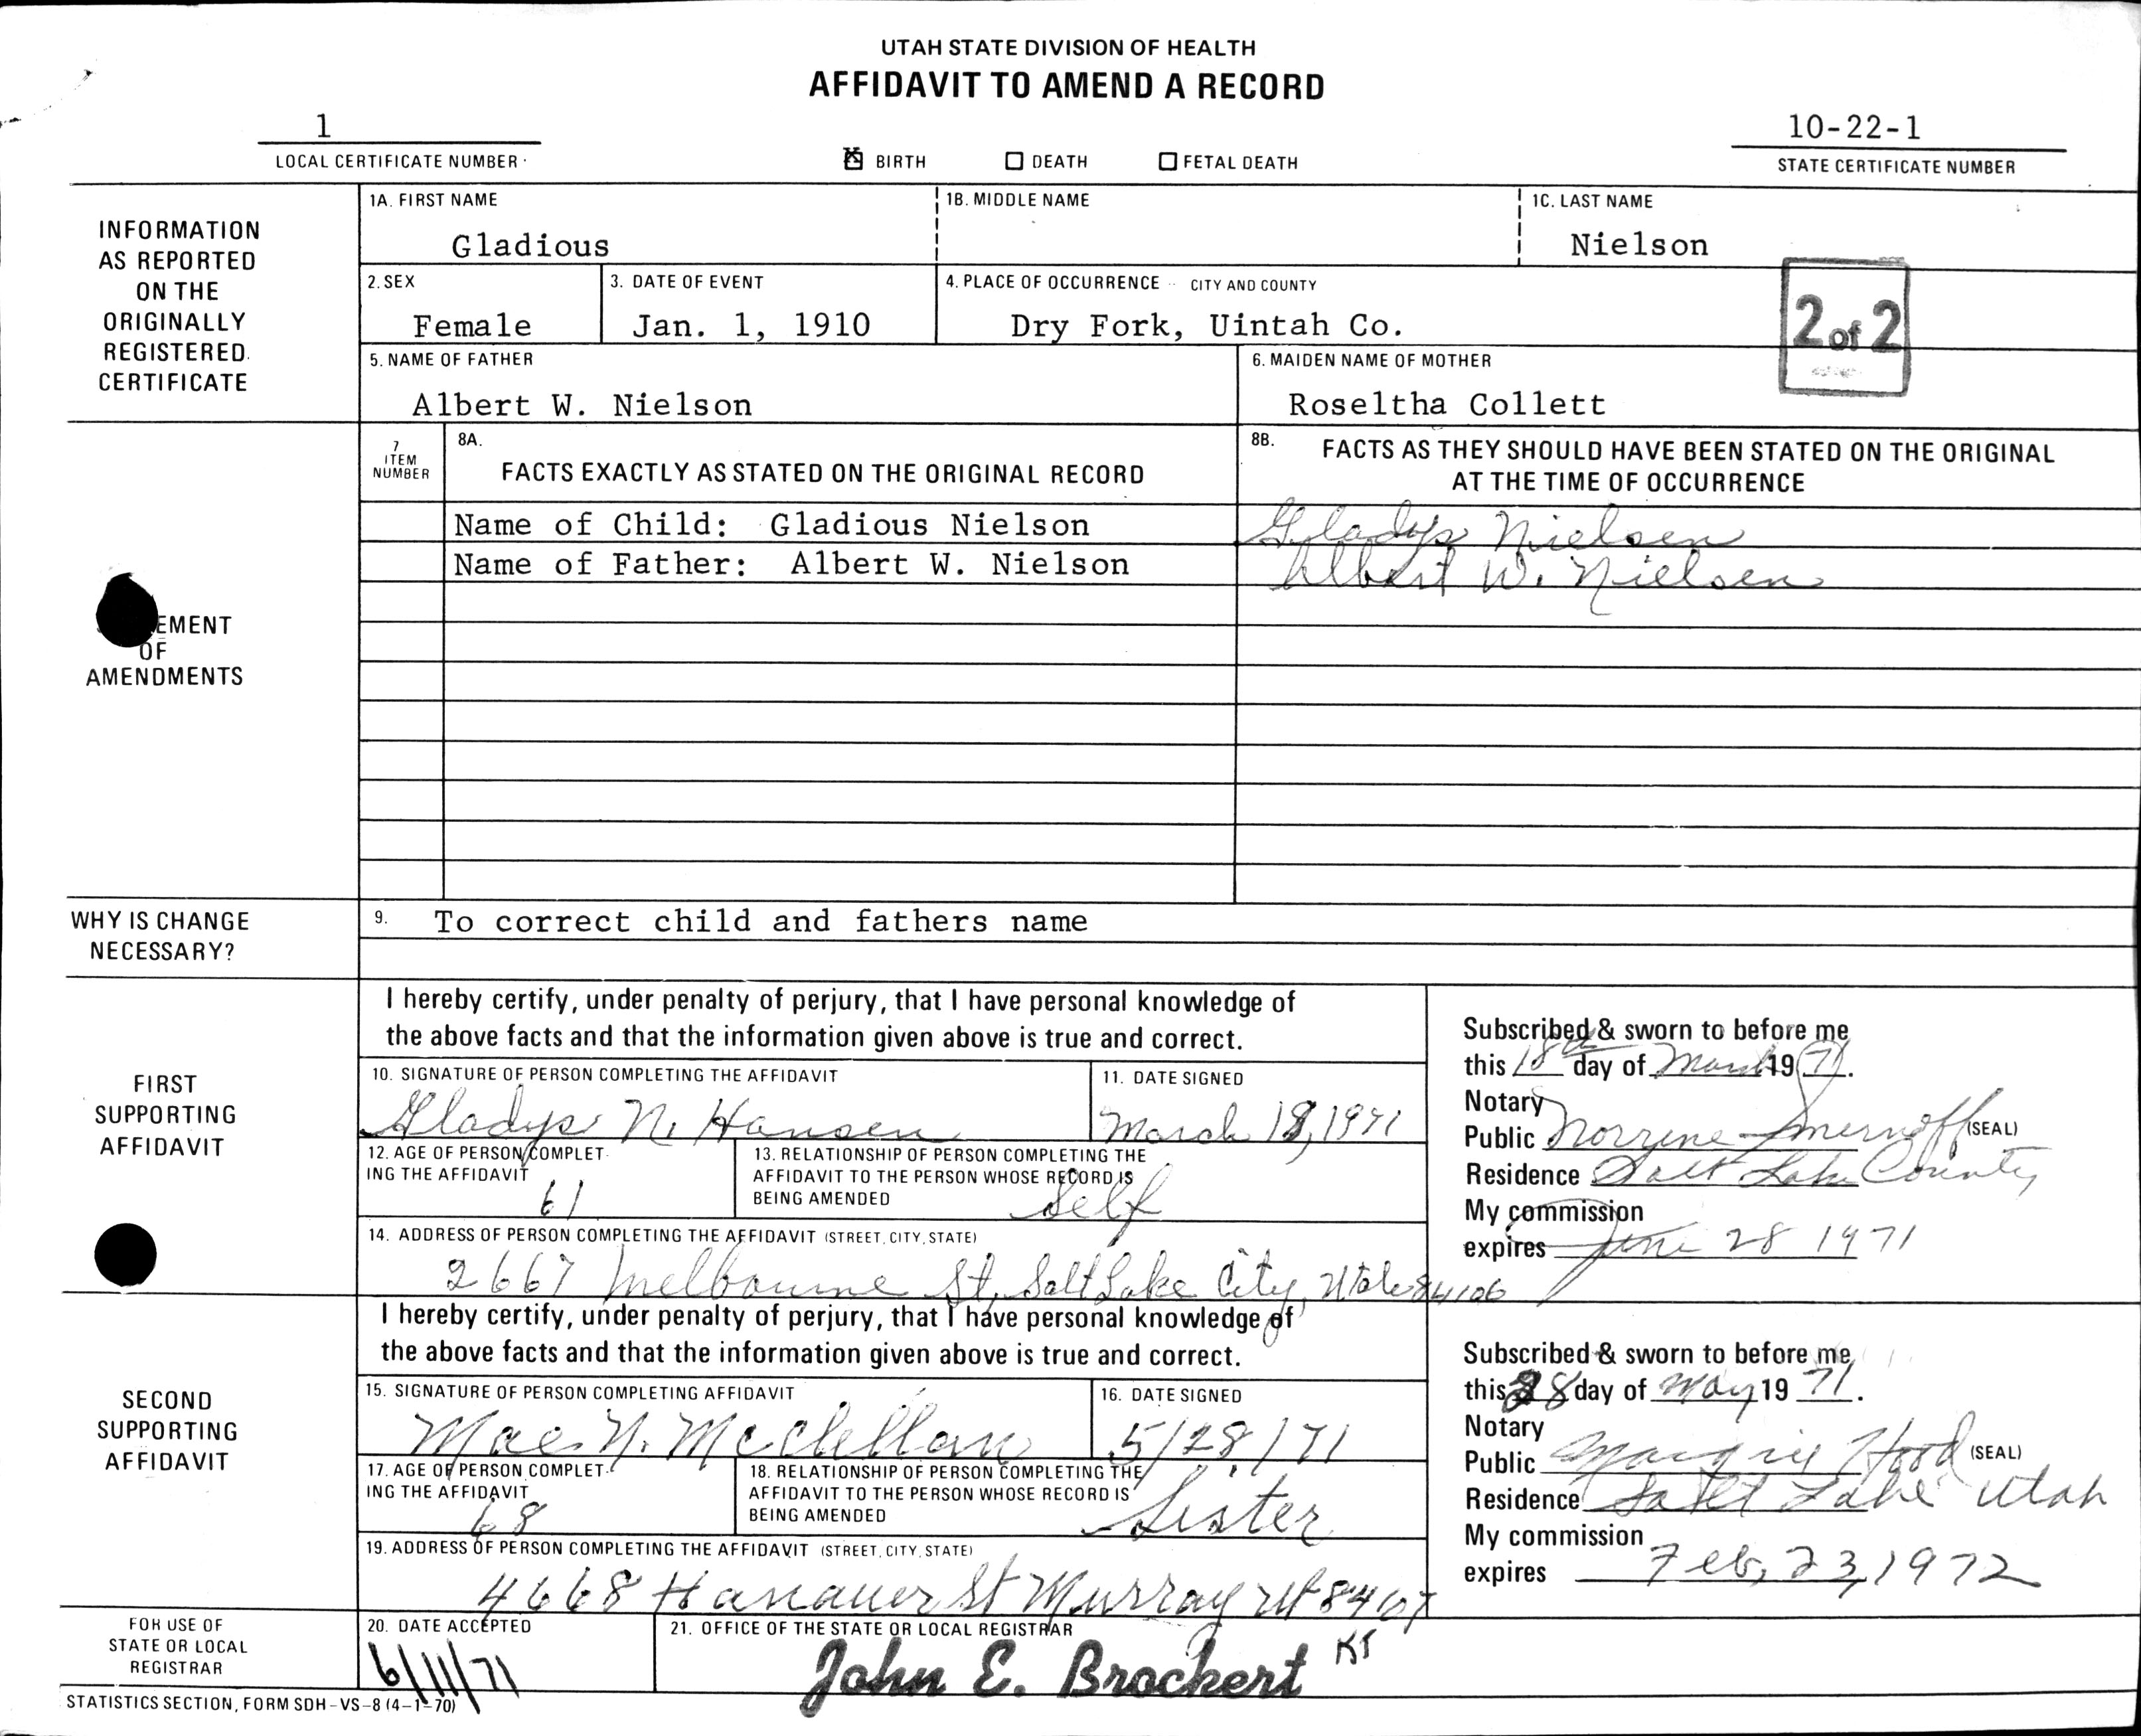 UTAH STATE DIVISION OF HEALTH
AFFIDAVIT TO AMEND A RECORD
1
LOCAL CERTIFICATE NUMBER
BIRTH
DEATH
FETAL DEATH
10-22-1
STATE CERTIFICATE NUMBER
INFORMATION
AS REPORTED
ON THE
ORIGINALLY
REGISTERED
CERTIFICATE
1A. FIRST NAME
Gladious
1B. MIDDLE NAME
1C. LAST NAME
Nielson
2. SEX
Female
3. DATE OF EVENT
Jan. 1, 1910
4. PLACE OF OCCURRENCE CITY AND COUNTY
Dry Fork, Uintah Co.
2 of 2
5. NAME OF FATHER
Albert W. Nielson
6. MAIDEN NAME OF MOTHER
Roseltha Collett
EMENT
OF
AMENDMENTS
7
ITEM
NUMBER
8A.
FACTS EXACTLY AS STATED ON THE ORIGINAL RECORD
8B. FACTS AS THEY SHOULD HAVE BEEN STATED ON THE ORIGINAL
AT THE TIME OF OCCURRENCE
Name of Child: Gladious Nielson
Gladys Nielsen
Name of Father: Albert W. Nielson
Albert W. Nielsen
WHY IS CHANGE
NECESSARY?
9. To correct child and fathers name
FIRST
SUPPORTING
AFFIDAVIT
I hereby certify, under penalty of perjury, that I have personal knowledge of
the above facts and that the information given above is true and correct.
10. SIGNATURE OF PERSON COMPLETING THE AFFIDAVIT
Gladys N. Hansen
11. DATE SIGNED
March 18, 1971
12. AGE OF PERSON COMPLET-
ING THE AFFIDAVIT
61
13. RELATIONSHIP OF PERSON COMPLETING THE
AFFIDAVIT TO THE PERSON WHOSE RECORD IS
BEING AMENDED
Self
14. ADDRESS OF PERSON COMPLETING THE AFFIDAVIT (STREET, CITY, STATE)
2667 Melbourne St, Salt Lake City, Utah 84106
Subscribed & sworn to before me
this 18th day of March 1971.
Notary
Public Norrene Smernoff (SEAL)
Residence Salt Lake County
My commission
expires June 28 1971
SECOND
SUPPORTING
AFFIDAVIT
I hereby certify, under penalty of perjury, that I have personal knowledge of
the above facts and that the information given above is true and correct.
15. SIGNATURE OF PERSON COMPLETING AFFIDAVIT
Mae N. McClellan
16. DATE SIGNED
5/28/71
17. AGE OF PERSON COMPLET-
ING THE AFFIDAVIT
68
18. RELATIONSHIP OF PERSON COMPLETING THE
AFFIDAVIT TO THE PERSON WHOSE RECORD IS
BEING AMENDED
Sister
19. ADDRESS OF PERSON COMPLETING THE AFFIDAVIT (STREET, CITY, STATE)
4668 Hanauer St Murray Ut 84107
Subscribed & sworn to before me
this 28 day of May 19 71.
Notary
Public Margie Hood (SEAL)
Residence Salt Lake Utah
My commission
expires Feb, 23, 1972
FOR USE OF
STATE OR LOCAL
REGISTRAR
20. DATE ACCEPTED
6/11/71
21. OFFICE OF THE STATE OR LOCAL REGISTRAR
John E. Brockert KT
STATISTICS SECTION, FORM SDH-VS-8 (4-1-70)